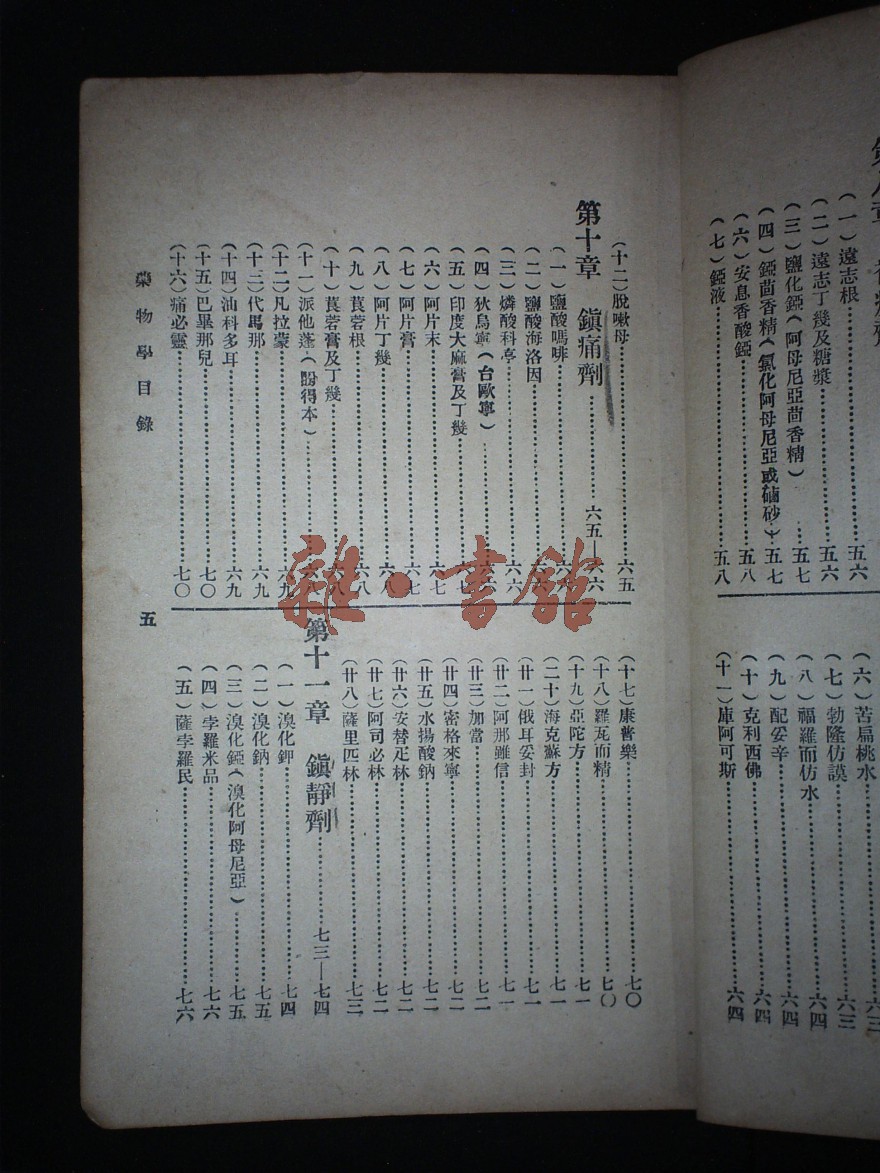 第八章
(一)遠志根……五六
(二)遠志丁幾及糖漿……五六
(三)鹽化錏(阿母尼亞茴香精)……五七
(四)錏茴香精(氯化阿母尼亞或硇砂)……五七
(六)安息香酸錏……五八
(七)錏液……五八
(六)苦扁桃水……六三
(七)勃隆仿謨……六三
(八)福羅而仿水……六四
(九)配妥辛……六四
(十)克利西佛……六四
(十一)庫阿可斯……六四
(十二)脫嗽母……六五
第十章 鎮痛劑……六五—六六
(一)鹽酸嗎啡……六六
(二)鹽酸海洛因……六六
(三)燐酸科亭……六六
(四)狄烏寧(台歐寧)……六六
(五)印度大麻膏及丁幾……六七
(六)阿片末……六七
(七)阿片膏……六七
(八)阿片丁幾……六八
(九)莨菪根……六八
(十)莨菪膏及丁幾……六八
(十一)派他蓬(盼得本)……六八
(十二)凡拉蒙……六九
(十三)代馬那……六九
(十四)油科多耳……六九
(十五)巴畢那兒……七〇
(十六)痛必靈……七〇
(十七)康普樂……七〇
(十八)羅瓦而精……七〇
(十九)亞陀方……七一
(二十)海克蘇方……七一
(廿一)俄耳妥封……七一
(廿二)阿那雖信……七一
(廿三)加當……七二
(廿四)密格來寧……七二
(廿五)水揚酸鈉……七二
(廿六)安替疋林……七二
(廿七)阿司必林……七二
(廿八)薩里匹林……七三
第十一章 鎮靜劑……七三—七四
(一)溴化鉀……七四
(二)溴化鈉……七五
(三)溴化錏(溴化阿母尼亞)……七五
(四)孛羅米品……七六
(五)薩孛羅民……七六
藥物學目錄
五
雜·書館